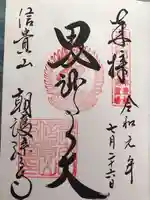 奉拝
令和元年
七月二十六日
毘沙门天
信貴山
朝護孫子寺